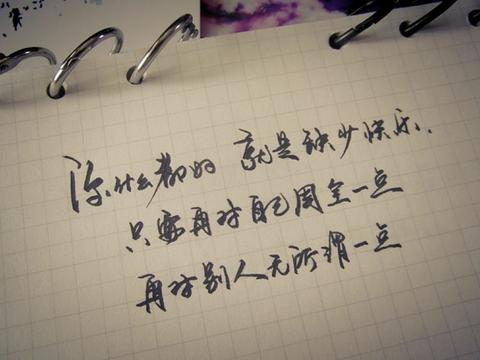 你什么都好 就是缺少快乐、
只需再对自己周全一点
再对别人无所谓一点